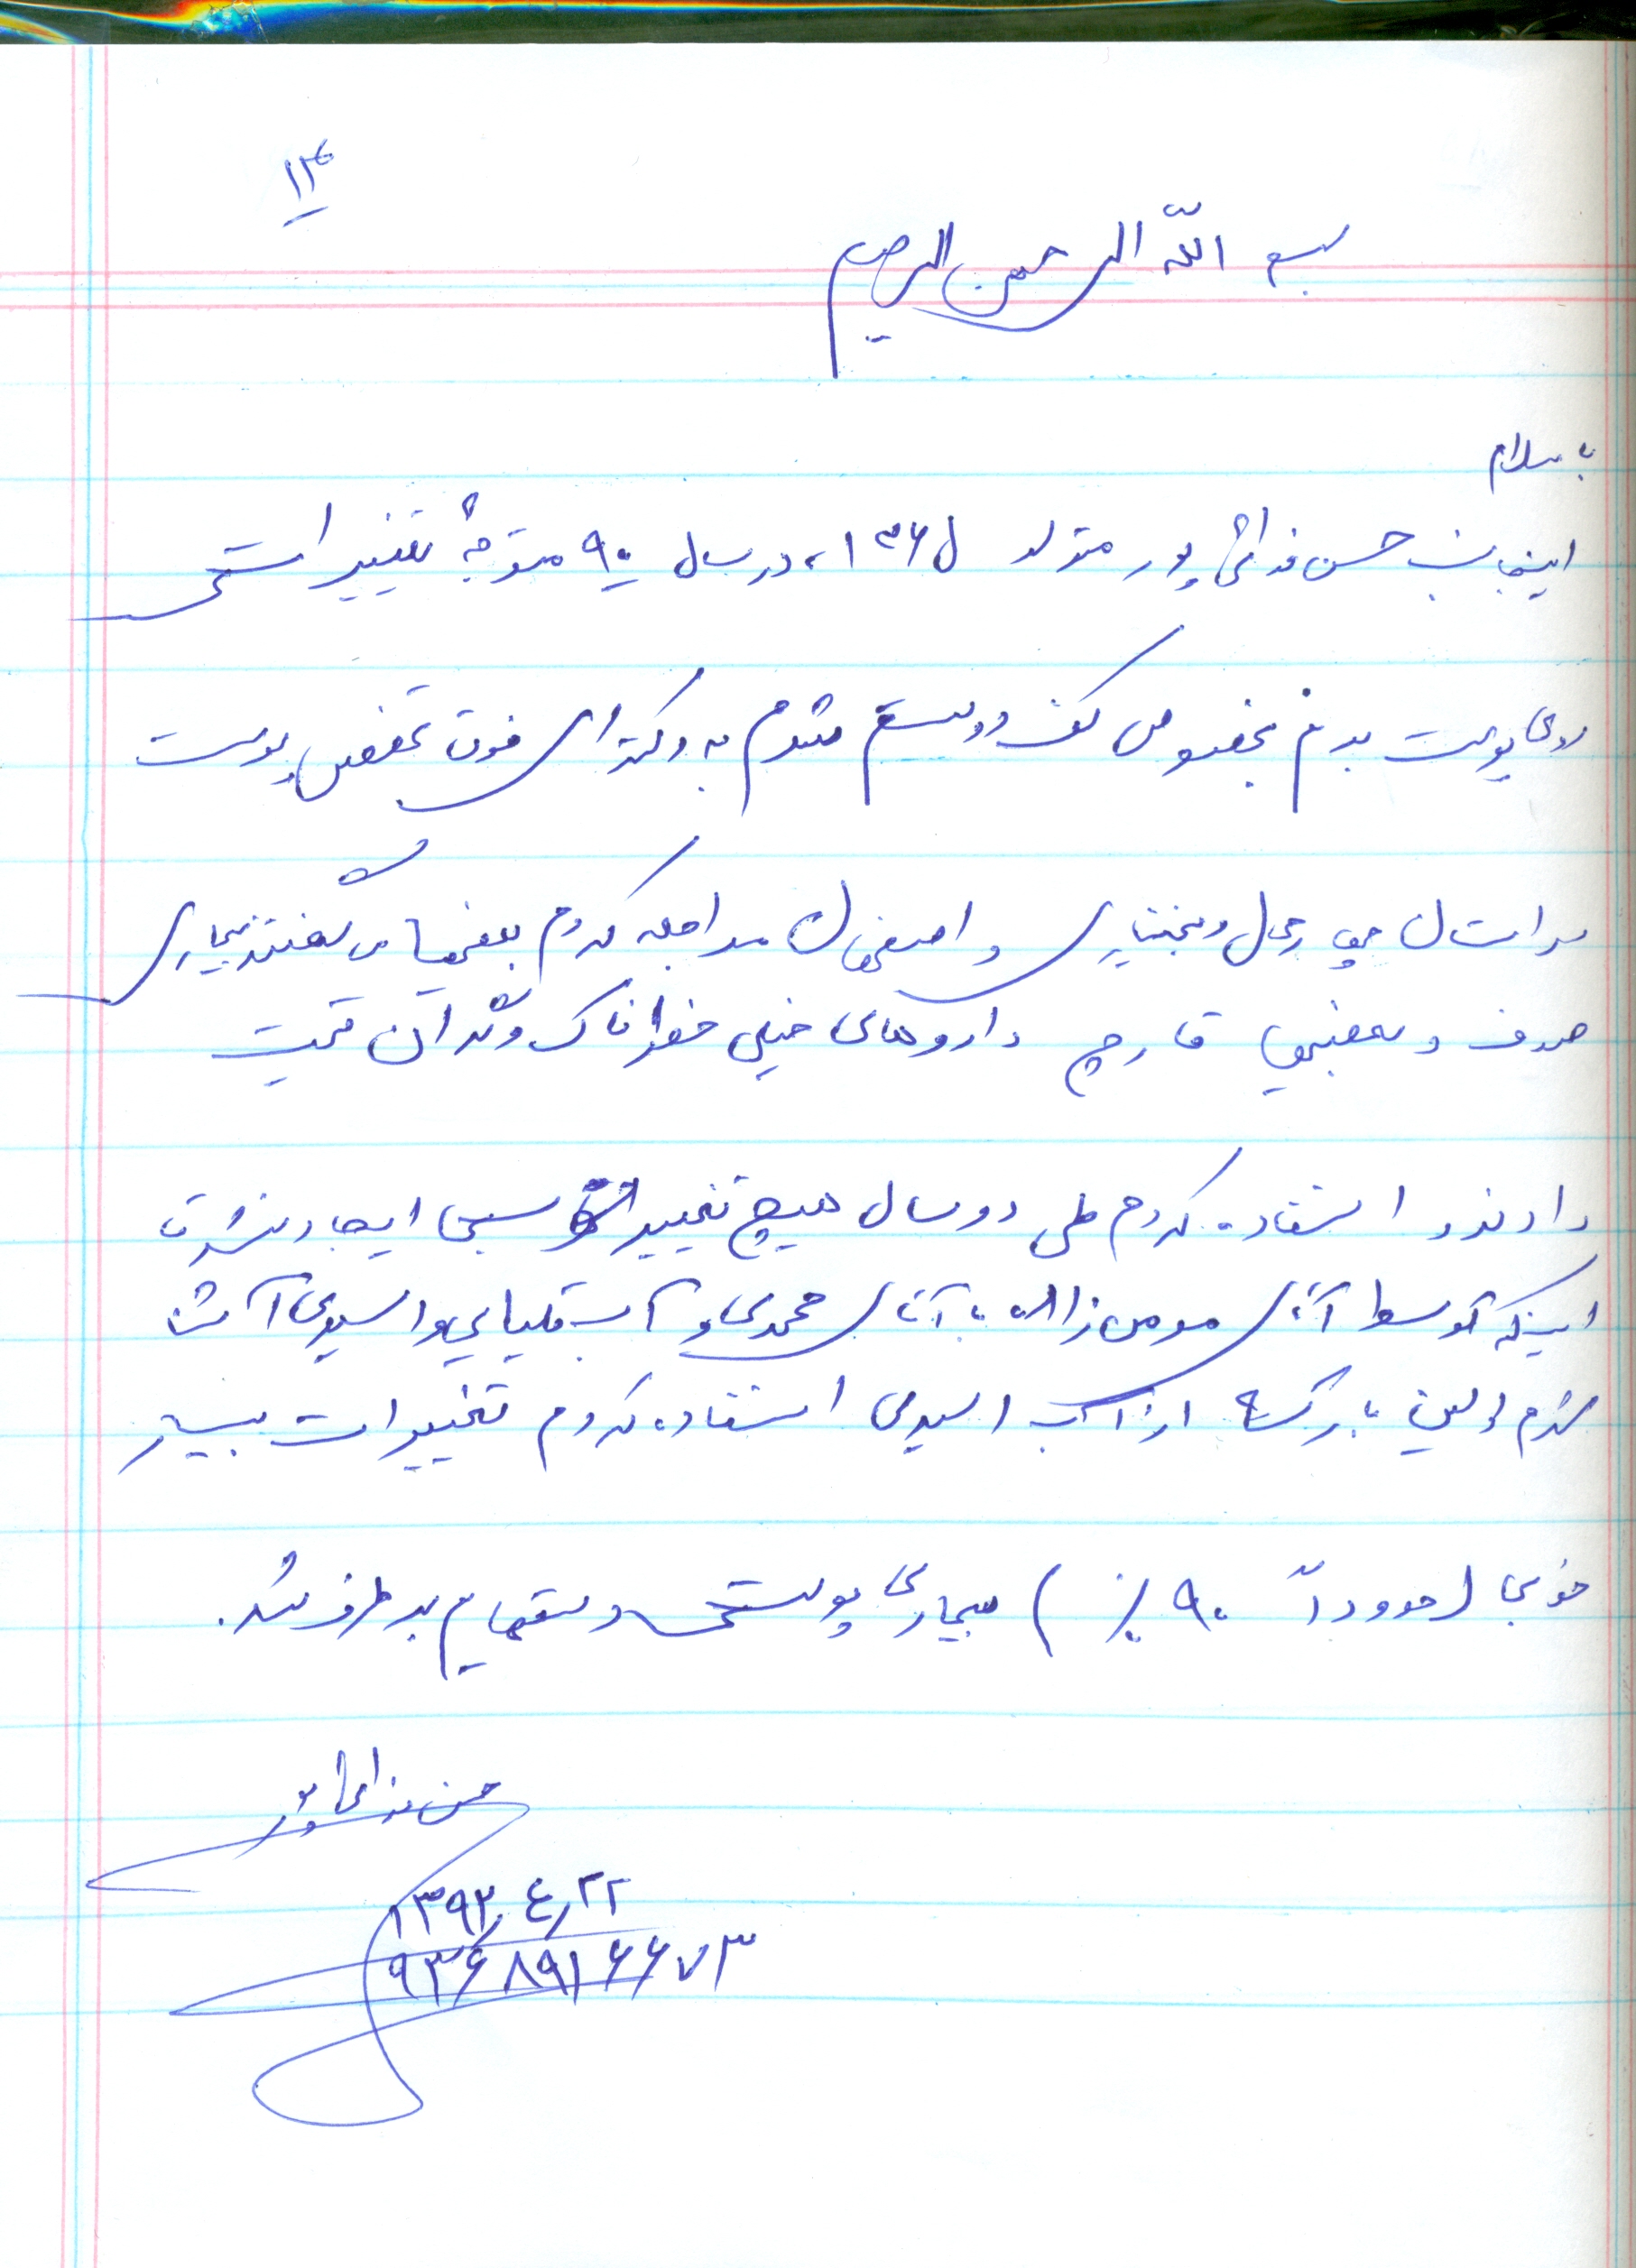 ۱۳
بسم الله الرحمن الرحیم
با سلام
اینجانب حسن فدائی پور متولد ۱۳۶۱، در سال ۹۰ متوجه تغییراتی
روی پوست بدنم بخصوص کف دو دستم شدم به دکترای فوق تخصص پوست
در استان چهارمحال و بختیاری و اصفهان مراجعه کردم بعضیها می گفتند بیماری
صدف و بعضیها قارچ داروهای خیلی خطرناک و گران قیمت
دادند و استفاده کردم طی دو سال هیچ تغییر ایجاد نشد تا
اینکه توسط آقای مومن زاده با آقای محمدی و آب قلیایی و اسیدی آشنا
شدم اولین بار که از آب اسیدی استفاده کردم تغییرات بسیار
خوبی (حدوداً ۹۰٪) بیماری پوستی دستهایم برطرف شد.
حسن فدائی پور
۱۳۹۲٫۴٫۲۲
۹۳۶۸۹۱۶۶۷۳